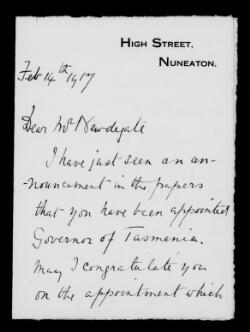 HIGH STREET,
NUNEATON.
Feb 14th 1917
Dear Mr Newdegate
I have just seen an an-
nouncement in the papers
that you have been appointed
Governor of Tasmania.
May I congratulate you
on the appointment which